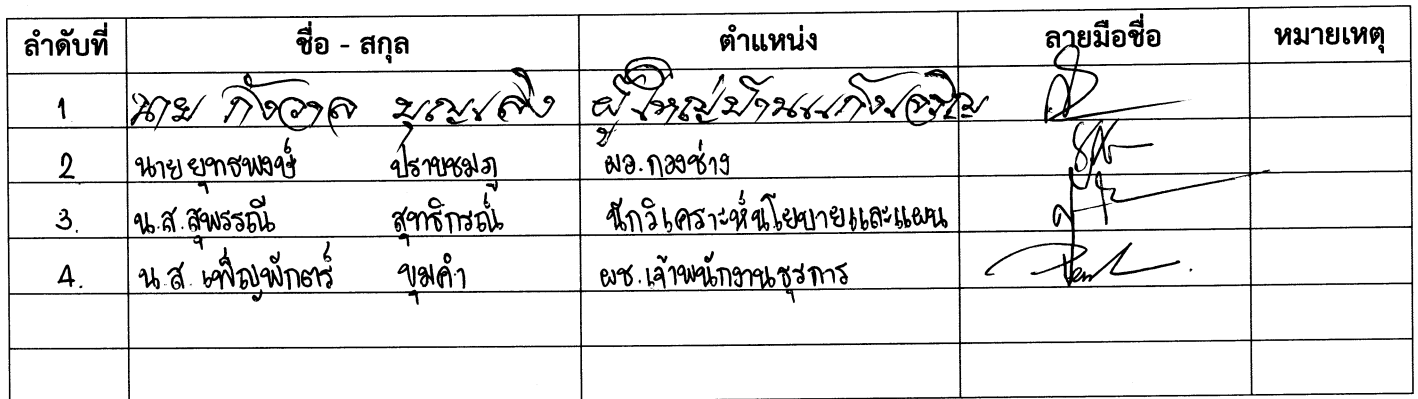 ลำดับที่ ชื่อ - สกุล ตำแหน่ง ลายมือชื่อ หมายเหตุ
1 นาย กังวาล บุญ ผู้ใหญ่บ้าน
2 นายยุทธพงษ์ ปราบชมภู ผอ.กองช่าง
3. น.ส.สุพรรณี สุทธิกรณ์ นักวิเคราะห์นโยบายและแผน
4. น.ส. เพ็ญพักตร์ ขุมคำ ผช.เจ้าพนักงานธุรการ